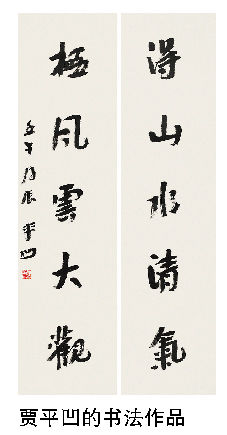 得山水清氣
極風雲大觀
壬午 平凹
贾平凹的书法作品